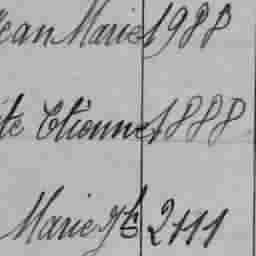 Jean Marie 1988
te Etienne 1888
Marie Jh 2111